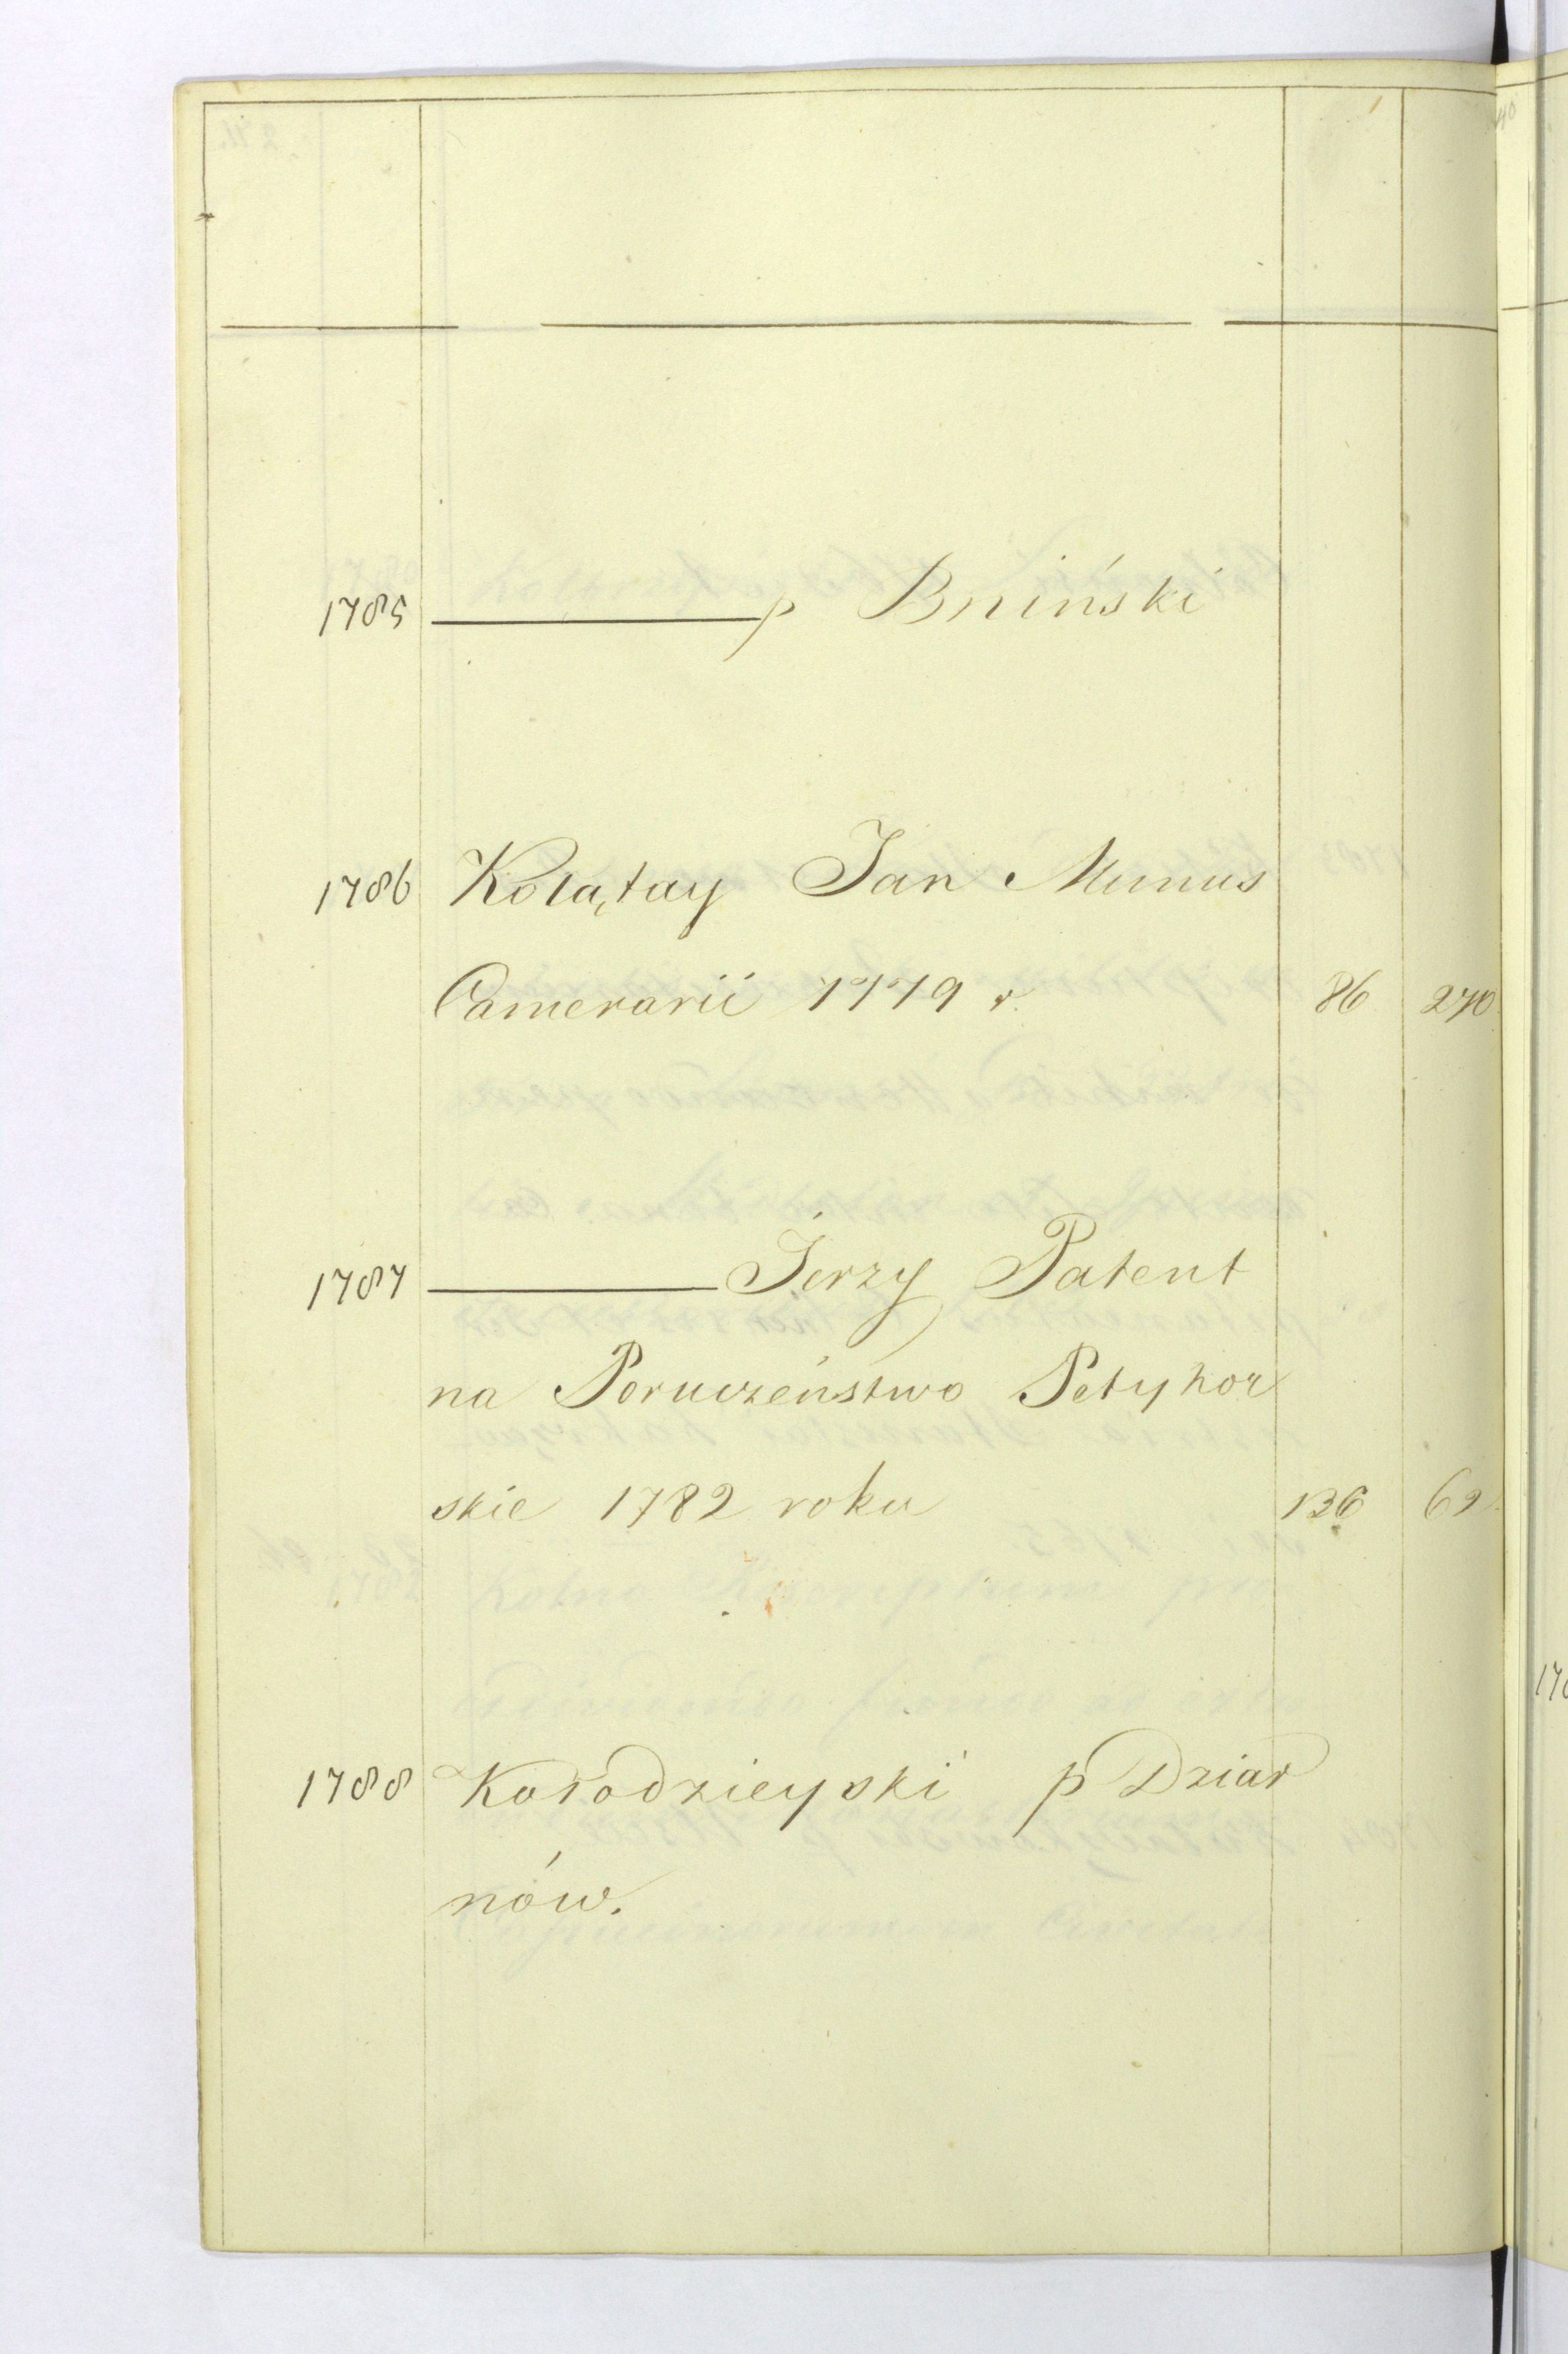 1785 ———— p Bniński
1786 Kołątay Jan Munus
Camerarii 1779 r. 86 270
1787 ———— Jerzy Patent
na Poruczeństwo Petyhor
skie 1782 roku 136 62
1788 Kołodzieyski p Dziar
nów.